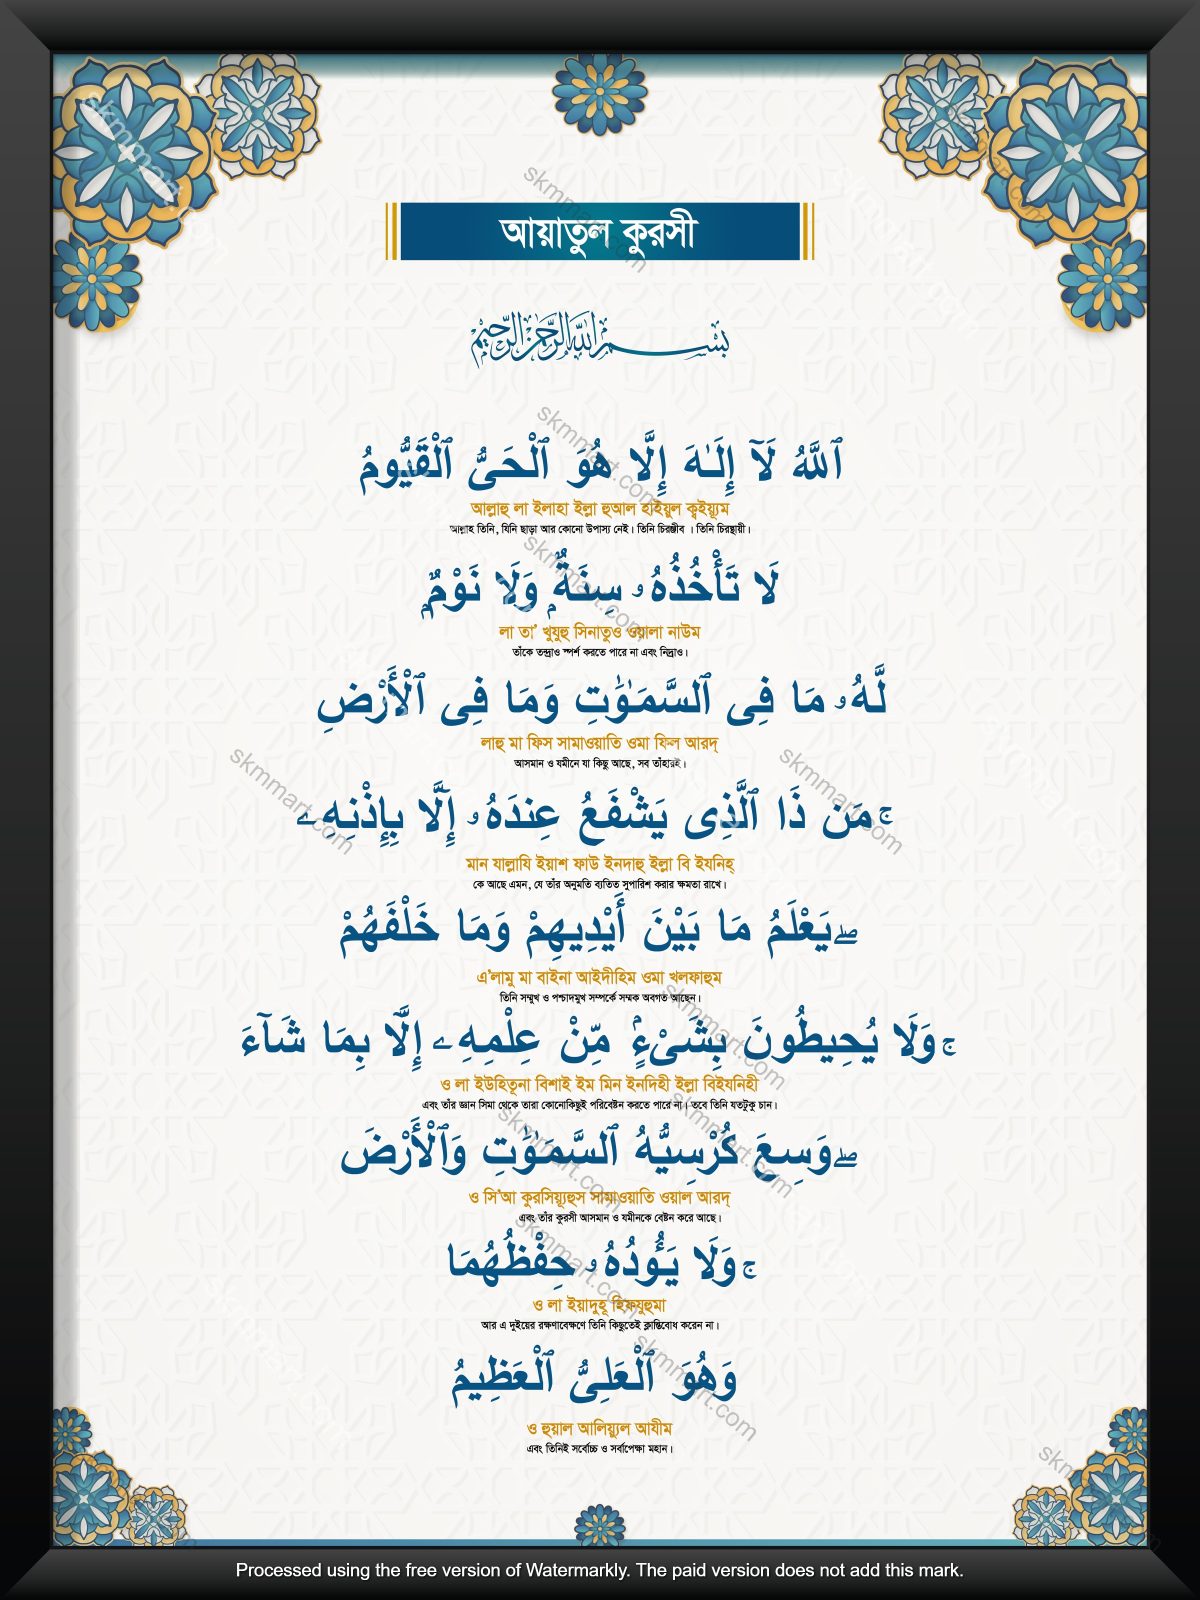 আয়াতুল কুরসী
بسم الله الرحمن الرحيم
ٱللَّهُ لَآ إِلَـٰهَ إِلَّا هُوَ ٱلْحَىُّ ٱلْقَيُّومُ
আল্লাহু লা ইলাহা ইল্লা হুআল হাইয়ুল ক্বইয়্যূম
আল্লাহ তিনি, যিনি ছাড়া আর কোনো উপাস্য নেই। তিনি চিরঞ্জীব । তিনি চিরস্থায়ী।
لَا تَأْخُذُهُۥ سِنَةٌۭ وَلَا نَوْمٌۭ
লা তা’ খুযুহু সিনাতুও ওয়ালা নাউম
তাঁকে তন্দ্রাও স্পর্শ করতে পারে না এবং নিদ্রাও।
لَّهُۥ مَا فِى ٱلسَّمَـٰوَٰتِ وَمَا فِى ٱلْأَرْضِ
লাহু মা ফিস সামাওয়াতি ওমা ফিল আরদ্
আসমান ও যমীনে যা কিছু আছে, সব তাঁহারই।
ۚ مَن ذَا ٱلَّذِى يَشْفَعُ عِندَهُۥٓ إِلَّا بِإِذْنِهِۦ
মান যাল্লাযি ইয়াশ ফাউ ইনদাহু ইল্লা বি ইযনিহ্
কে আছে এমন, যে তাঁর অনুমতি ব্যতিত সুপারিশ করার ক্ষমতা রাখে।
ۖ يَعْلَمُ مَا بَيْنَ أَيْدِيهِمْ وَمَا خَلْفَهُمْ
এ’লামু মা বাইনা আইদীহিম ওমা খলফাহুম
তিনি সম্মুখ ও পশ্চাদমুখ সম্পর্কে সম্মক অবগত আছেন।
ۚ وَلَا يُحِيطُونَ بِشَىْءٍۢ مِّنْ عِلْمِهِۦٓ إِلَّا بِمَا شَآءَ
ও লা ইউহিতূনা বিশাই ইম মিন ইনদিহী ইল্লা বিইযনিহী
এবং তাঁর জ্ঞান সিমা থেকে তারা কোনোকিছুই পরিবেষ্টন করতে পারে না। তবে তিনি যতটুকু চান।
ۖ وَسِعَ كُرْسِيُّهُ ٱلسَّمَـٰوَٰتِ وَٱلْأَرْضَ
ও সি’আ কুরসিয়্যূহুস সামাওয়াতি ওয়াল আরদ্
এবং তাঁর কুরসী আসমান ও যমীনকে বেষ্টন করে আছে।
ۚ وَلَا يَـُٔودُهُۥ حِفْظُهُمَا
ও লা ইয়াদুহূ হিফযুহুমা
আর এ দুইয়ের রক্ষণাবেক্ষণে তিনি কিছুতেই ক্লান্তিবোধ করেন না।
وَهُوَ ٱلْعَلِىُّ ٱلْعَظِيمُ
ও হুয়াল আলিয়্যুল আযীম
এবং তিনিই সর্বোচ্চ ও সর্বাপেক্ষা মহান।
skmmart.com
Processed using the free version of Watermarkly. The paid version does not add this mark.